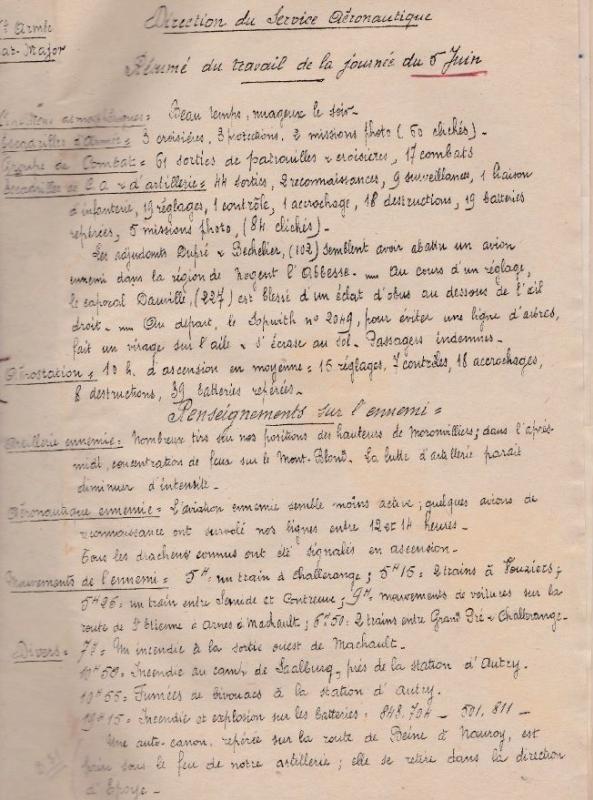 Direction du Service Aéronautique
Armée
Major
Résumé du travail de la journée du 5 Juin
Beau temps, nuageux le soir -
Escadrilles d'Armée = 3 croisières, 3 protections, 2 missions photo (60 clichés) -
Groupe de Combat = 61 sorties de patrouilles & croisières, 17 combats
Escadrilles de C.A. & d'artillerie = 44 sorties, 2 reconnaissances, 9 surveillances, 1 liaison
d'infanterie, 19 réglages, 1 contrôle, 1 accrochage, 18 destructions, 19 batteries
repérées, 5 missions photo, (84 clichés) -
Les adjudants Dupré & Bechelier, (102) semblent avoir abattu un avion
ennemi dans la région de Nogent l'Abbesse. — Au cours d'un réglage,
le caporal Dauville, (227) est blessé d'un éclat d'obus au dessous de l'œil
droit. — Au départ, le Sopwith n° 2049, pour éviter une ligne d'arbres,
fait un virage sur l'aile & s'écrase au sol. Passagers indemnes -
Aérostation = 10 h. d'ascension en moyenne = 15 réglages, 7 contrôles, 18 accrochages,
8 destructions, 39 batteries repérées -
Renseignements sur l'ennemi =
Artillerie ennemie = Nombreux tirs sur nos positions des hauteurs de Moronvilliers ; dans l'après-
midi, concentration de feux sur le Mont-Blond. La lutte d'artillerie paraît
diminuer d'intensité -
Aéronautique ennemie = L'aviation ennemie semble moins active ; quelques avions de
reconnaissance ont survolé nos lignes entre 12 et 14 heures -
Tous les drachens connus ont été signalés en ascension -
Mouvements de l'ennemi = 5H : un train à Challerange ; 5H15 : 2 trains à Vouziers ;
5H26 : un train entre Semide et Contreuve ; 9H : mouvements de voitures sur la
route de St Etienne à Arnes à Machault ; 6H50 : 2 trains entre Grand Pré & Challerange -
Divers = 7H : Un incendie à la sortie ouest de Machault -
10H59 : Incendie au camp de Saalburg, près de la station d'Autry.
19H55 : Fumées de bivouacs à la station d'Autry.
19H15 : Incendie et explosion sur les batteries : 848.704 — 501.811 —
Une auto-canon, repérée sur la route de Beine à Nauroy, est
prise sous le feu de notre artillerie ; elle se retire dans la direction
d'Epoye -